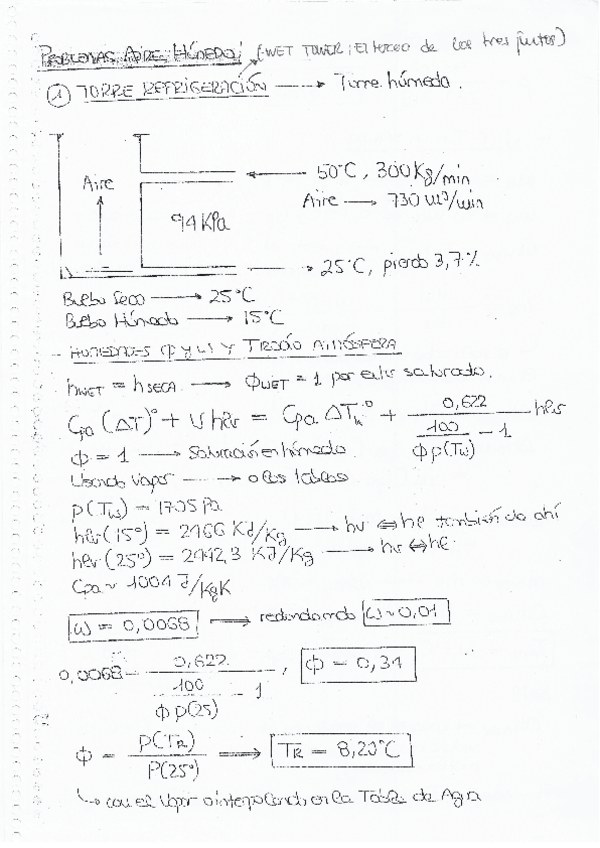 PROBLEMAS AIRE HÚMEDO: (WET TOWER; El tocho de los tres juntos)
① TORRE REFRIGERACIÓN → Torre húmeda.
50°C, 300 Kg/min
Aire
Aire → 730 m³/min
94 KPa
25°C, pierdo 3,7%
Bulbo Seco → 25°C
Bulbo Húmedo → 15°C
- HUMEDADES (φ y ω) Y TROCÍO ATMÓSFERA
hWET = hSECA → φWET = 1 por estar saturado.
Cpa (ΔT)° + ω hlv = Cpa ΔTh° + 0,622 / (100 / φ p(Tw) - 1) hlv
φ = 1 → Saturación en húmedo.
Usando vapor → o las tablas
p(Tw) = 1705 Pa
hlv (15°) = 2466 KJ/Kg → hv ⇔ hl también da ahí
hlv (25°) = 2442,3 KJ/Kg → hv ⇔ hl
Cpa ~ 1004 J/KgK
ω = 0,0068 → redondeando ω ~ 0,01
0,0068 = 0,622 / (100 / φ p(25) - 1), φ = 0,34
φ = p(TR) / P(25°) ⇒ TR = 8,20°C
↳ con el Vapor o interpolando en la Tabla de Agua